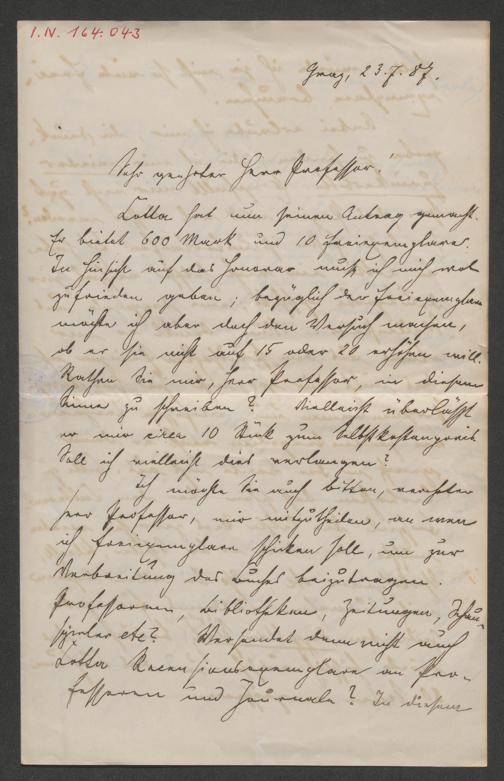 I.N. 164.043
Graz, 23.7.87.
Sehr geehrter Herr Professor!
Cotta hat nun seinen Antrag gemacht.
Er bietet 600 Mark und 10 Freiexemplare.
In Hinsicht auf das Honorar muß ich mich wol
zufrieden geben; bezüglich der Freiexemplare
möchte ich aber doch den Versuch machen,
ob er sie nicht auf 15 oder 20 erhöhen will.
Rathen Sie mir, Herr Professor, in diesem
Sinne zu schreiben? Vielleicht überläßt
er mir circa 10 Stück zum Selbstkostenpreis
Soll ich vielleicht dies verlangen?
Ich möchte Sie auch bitten, verehrter
Herr Professor, mir mitzutheilen, an wen
ich Freiexemplare schicken soll, um zur
Verbreitung des Buches beizutragen.
Professoren, Bibliotheken, Zeitungen, Schau-
spieler etc? Versendet denn nicht auch
Cotta Recensionsexemplare an Pro-
fessoren und Journale? In diesem